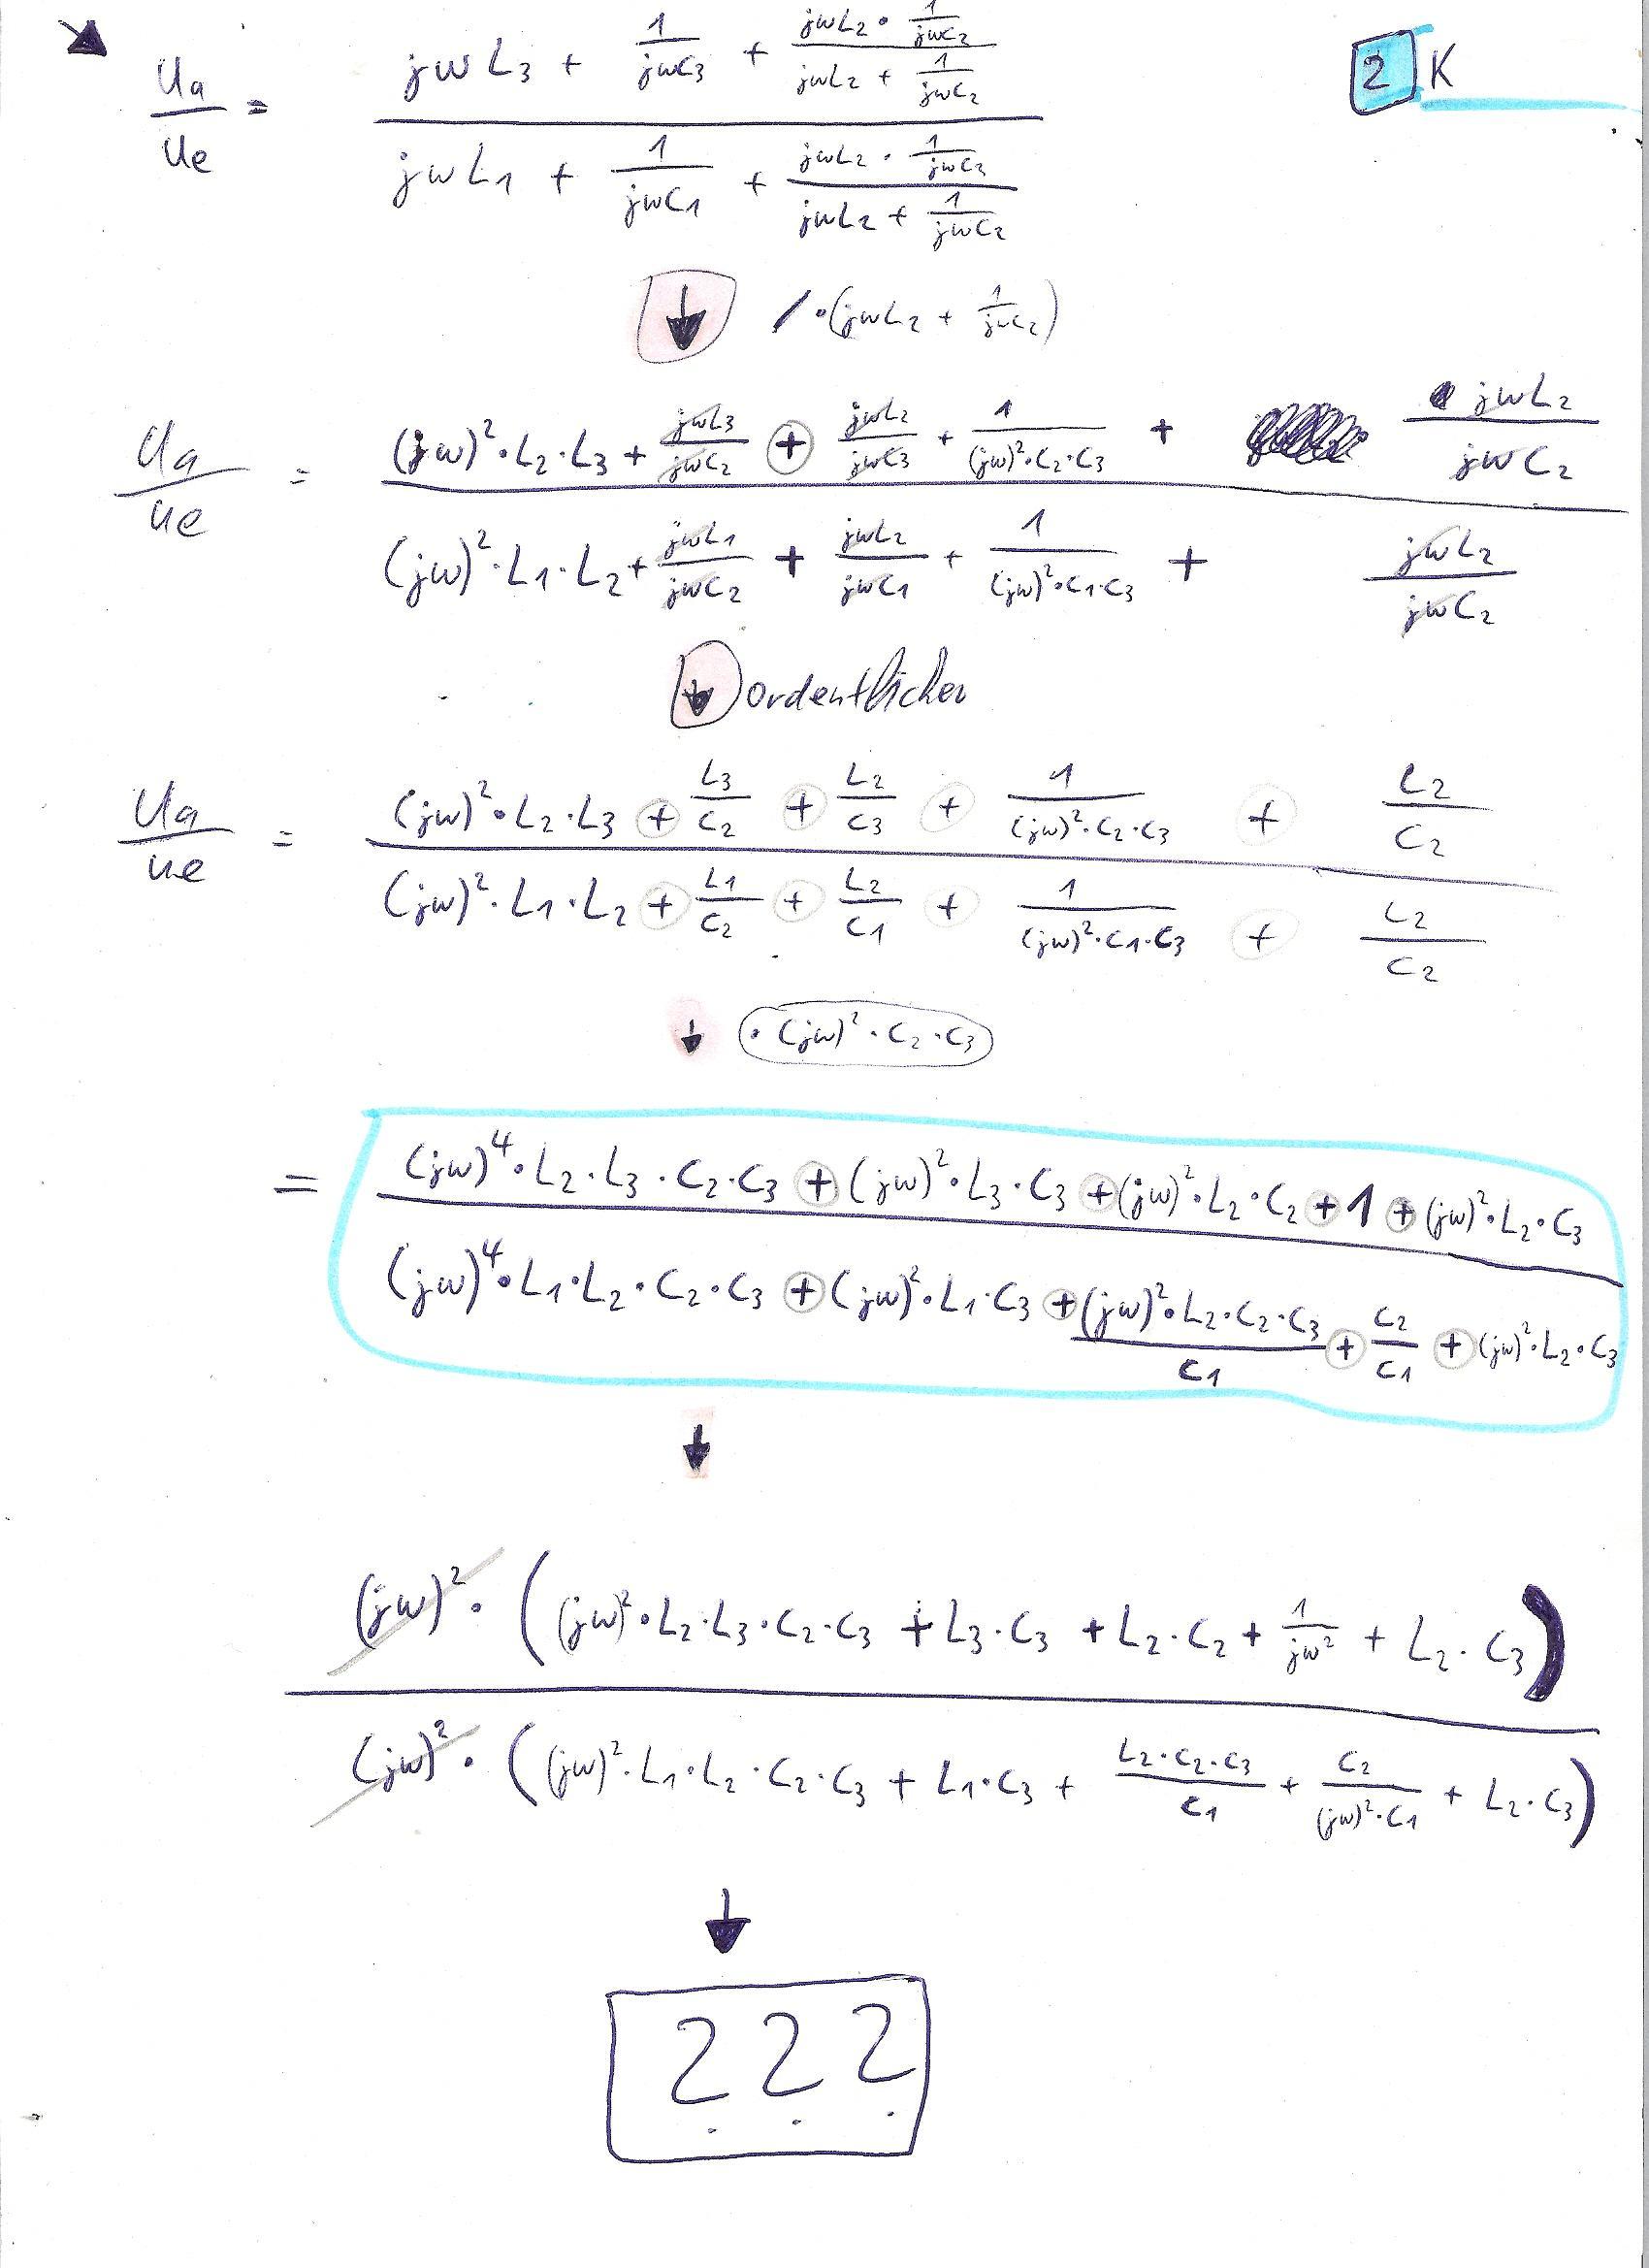 2 K
Ua/Ue = (jωL3 + 1/(jωC3) + (jωL2 · 1/(jωC2))/(jωL2 + 1/(jωC2))) / (jωL1 + 1/(jωC1) + (jωL2 · 1/(jωC2))/(jωL2 + 1/(jωC2)))
↓ / · (jωL2 + 1/(jωC2))
Ua/Ue = ((jω)² · L2 · L3 + jωL3/jωC2 + jωL2/jωC3 + 1/((jω)² · C2 · C3) + jωL2/jωC2) / ((jω)² · L1 · L2 + jωL1/jωC2 + jωL2/jωC1 + 1/((jω)² · C1 · C3) + jωL2/jωC2)
↓ ordentlicher
Ua/Ue = ((jω)² · L2 · L3 + L3/C2 + L2/C3 + 1/((jω)² · C2 · C3) + L2/C2) / ((jω)² · L1 · L2 + L1/C2 + L2/C1 + 1/((jω)² · C1 · C3) + L2/C2)
↓ · (jω)² · C2 · C3
= ((jω)⁴ · L2 · L3 · C2 · C3 + (jω)² · L3 · C3 + (jω)² · L2 · C2 + 1 + (jω)² · L2 · C3) / ((jω)⁴ · L1 · L2 · C2 · C3 + (jω)² · L1 · C3 + ((jω)² · L2 · C2 · C3)/C1 + C2/C1 + (jω)² · L2 · C3)
↓
(jω)² · ((jω)² · L2 · L3 · C2 · C3 + L3 · C3 + L2 · C2 + 1/jω² + L2 · C3) / (jω)² · ((jω)² · L1 · L2 · C2 · C3 + L1 · C3 + (L2 · C2 · C3)/C1 + C2/((jω)² · C1) + L2 · C3)
↓
? ? ?